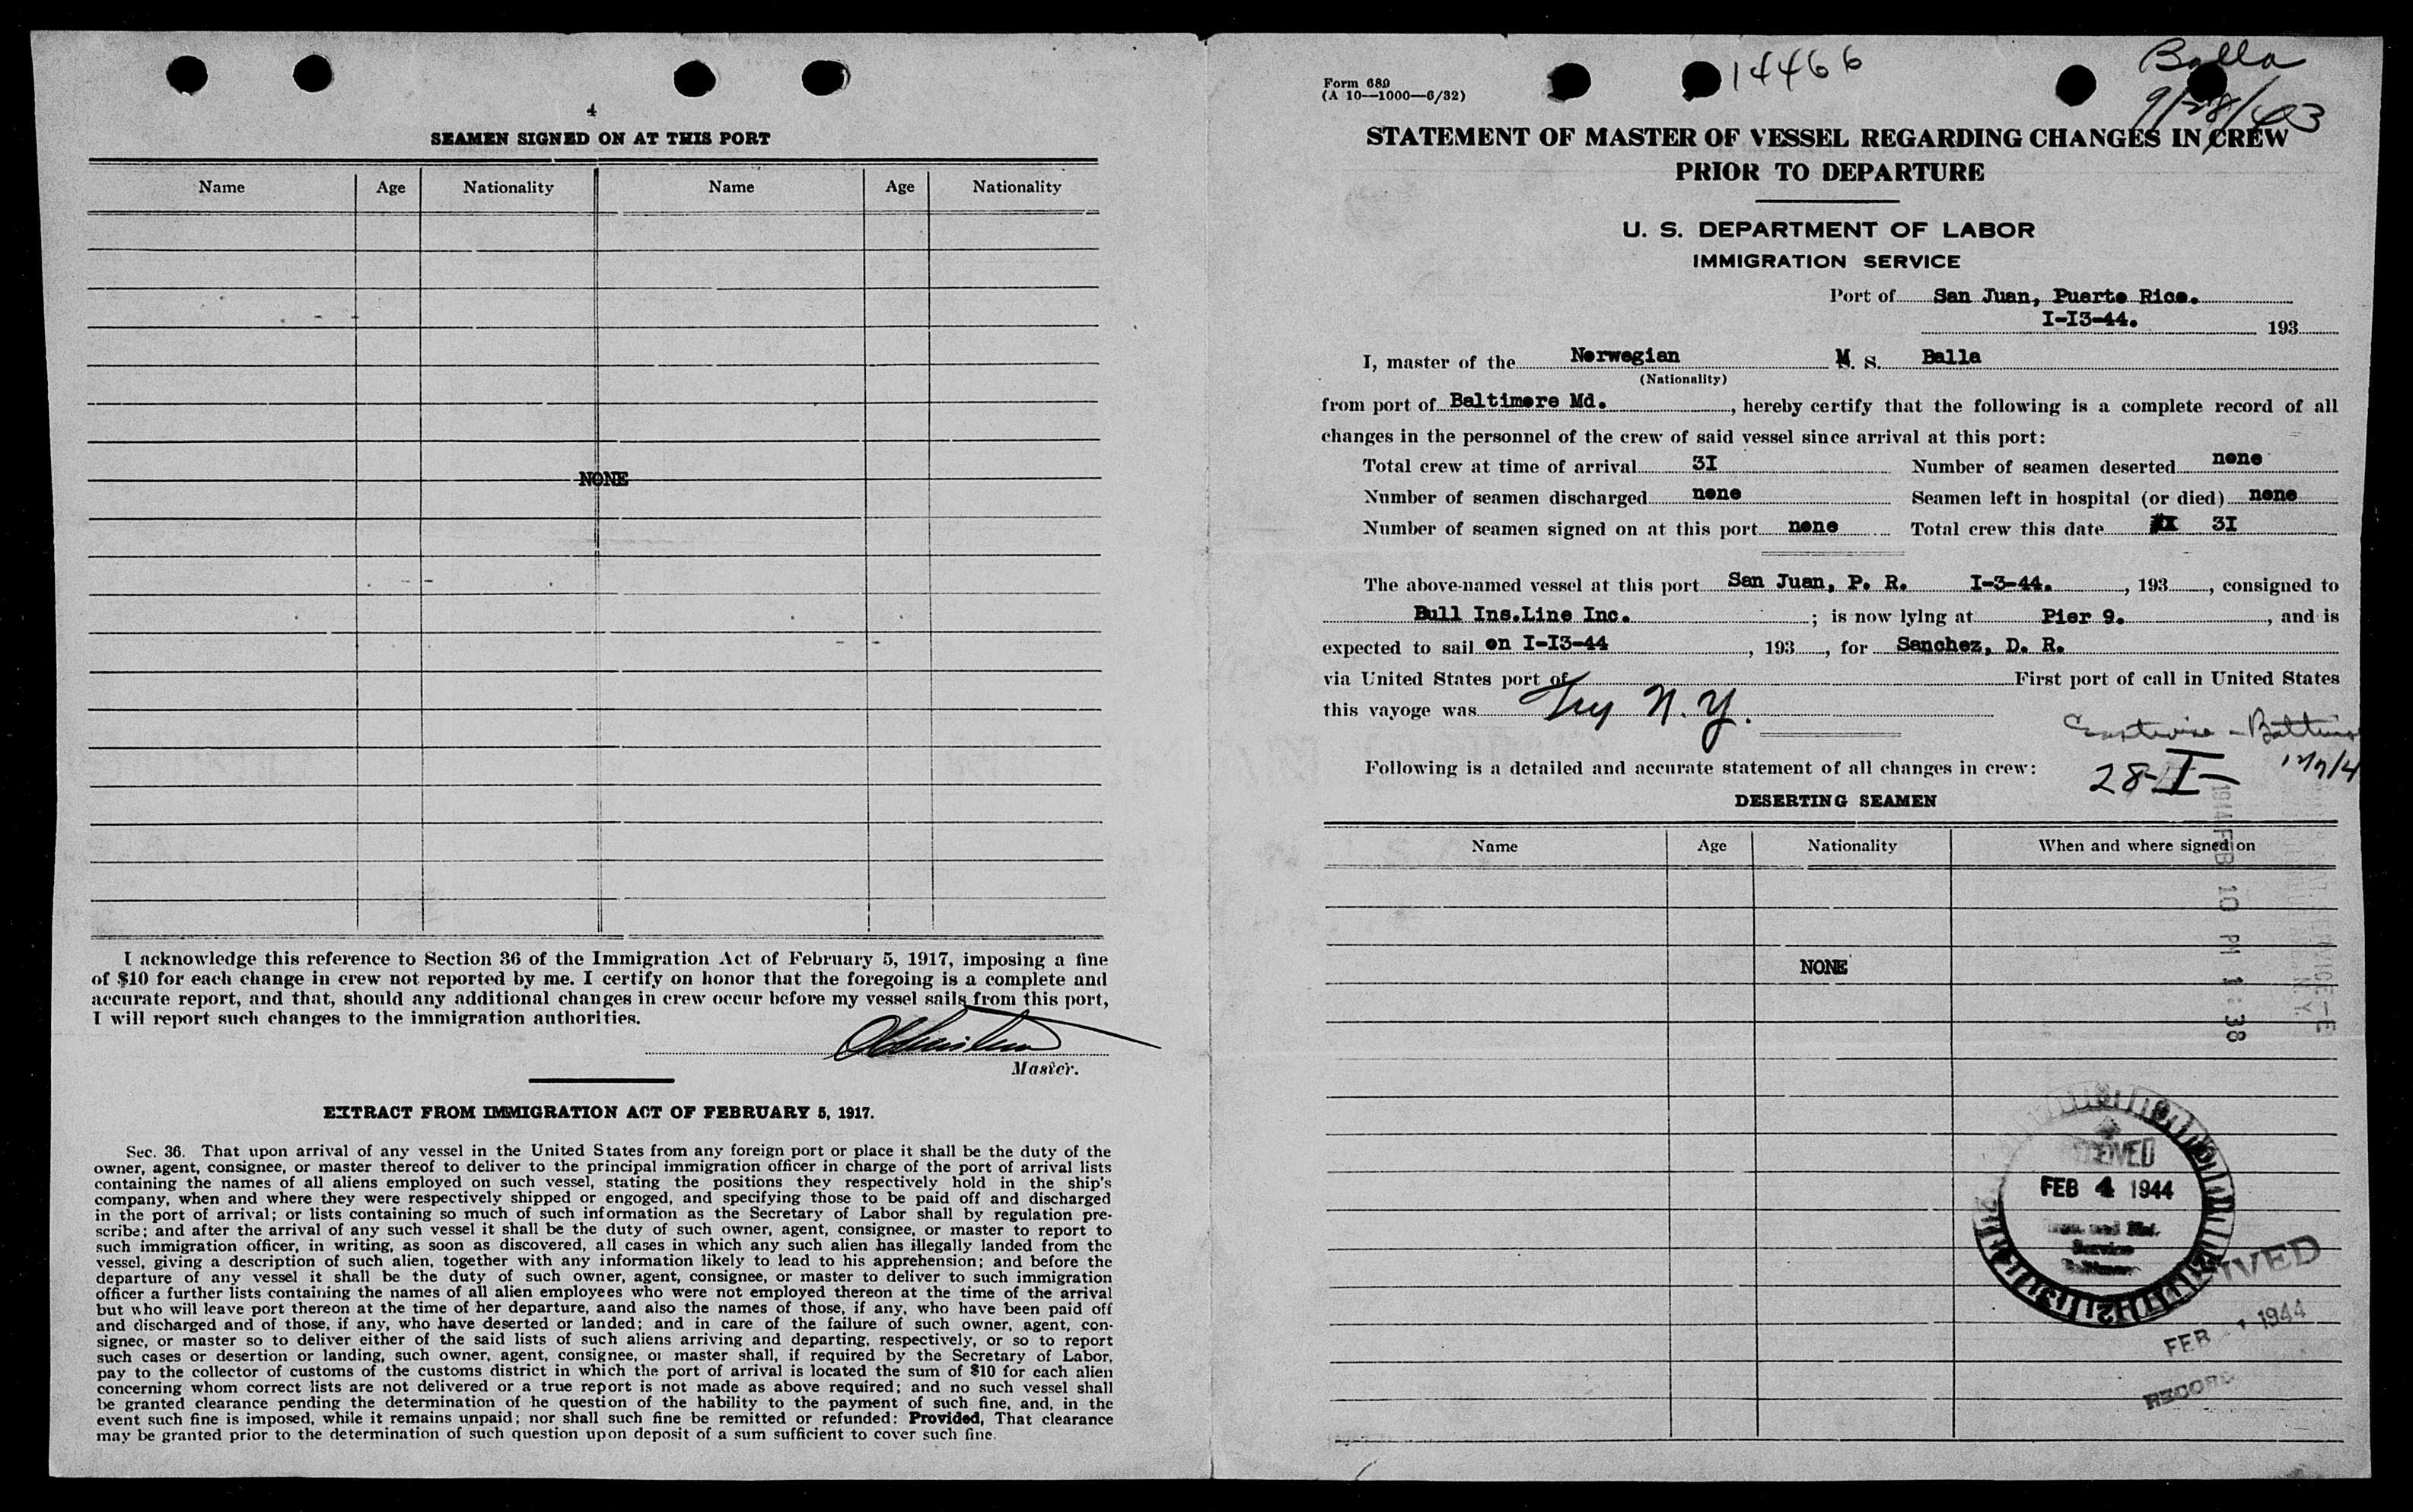 4
SEAMEN SIGNED ON AT THIS PORT
Name Age Nationality Name Age Nationality
NONE
I acknowledge this reference to Section 36 of the Immigration Act of February 5, 1917, imposing a fine
of $10 for each change in crew not reported by me. I certify on honor that the foregoing is a complete and
accurate report, and that, should any additional changes in crew occur before my vessel sails from this port,
I will report such changes to the immigration authorities.
Master.
EXTRACT FROM IMMIGRATION ACT OF FEBRUARY 5, 1917.
Sec. 36. That upon arrival of any vessel in the United States from any foreign port or place it shall be the duty of the
owner, agent, consignee, or master thereof to deliver to the principal immigration officer in charge of the port of arrival lists
containing the names of all aliens employed on such vessel, stating the positions they respectively hold in the ship's
company, when and where they were respectively shipped or engoged, and specifying those to be paid off and discharged
in the port of arrival; or lists containing so much of such information as the Secretary of Labor shall by regulation pre-
scribe; and after the arrival of any such vessel it shall be the duty of such owner, agent, consignee, or master to report to
such immigration officer, in writing, as soon as discovered, all cases in which any such alien has illegally landed from the
vessel, giving a description of such alien, together with any information likely to lead to his apprehension; and before the
departure of any vessel it shall be the duty of such owner, agent, consignee, or master to deliver to such immigration
officer a further lists containing the names of all alien employees who were not employed thereon at the time of the arrival
but who will leave port thereon at the time of her departure, aand also the names of those, if any, who have been paid off
and discharged and of those, if any, who have deserted or landed; and in care of the failure of such owner, agent, con-
signec, or master so to deliver either of the said lists of such aliens arriving and departing, respectively, or so to report
such cases or desertion or landing, such owner, agent, consignee, or master shall, if required by the Secretary of Labor,
pay to the collector of customs of the customs district in which the port of arrival is located the sum of $10 for each alien
concerning whom correct lists are not delivered or a true report is not made as above required; and no such vessel shall
be granted clearance pending the determination of he question of the hability to the payment of such fine, and, in the
event such fine is imposed, while it remains unpaid; nor shall such fine be remitted or refunded: Provided, That clearance
may be granted prior to the determination of such question upon deposit of a sum sufficient to cover such fine.
Form 689
(A 10—1000—6/32)
14466
Balla
9/28/43
STATEMENT OF MASTER OF VESSEL REGARDING CHANGES IN CREW
PRIOR TO DEPARTURE
U. S. DEPARTMENT OF LABOR
IMMIGRATION SERVICE
Port of San Juan, Puerto Rico.
I-I3-44. 193
I, master of the Norwegian M. S. Balla
(Nationality)
from port of Baltimore Md. , hereby certify that the following is a complete record of all
changes in the personnel of the crew of said vessel since arrival at this port:
Total crew at time of arrival 3I Number of seamen deserted none
Number of seamen discharged none Seamen left in hospital (or died) none
Number of seamen signed on at this port none Total crew this date 3I
The above-named vessel at this port San Juan, P. R. I-3-44. , 193 , consigned to
Bull Ins.Line Inc. ; is now lylng at Pier 9. , and is
expected to sail on I-I3-44 , 193 , for Sanchez, D. R.
via United States port of First port of call in United States
this vayoge was N. Y.
Coastwise - Baltimo
28-I-
Following is a detailed and accurate statement of all changes in crew:
DESERTING SEAMEN
Name Age Nationality When and where signed on
NONE
1944 FEB 10 PM 1:38
FEB 4 1944
Service
FEB 1944
RECORD